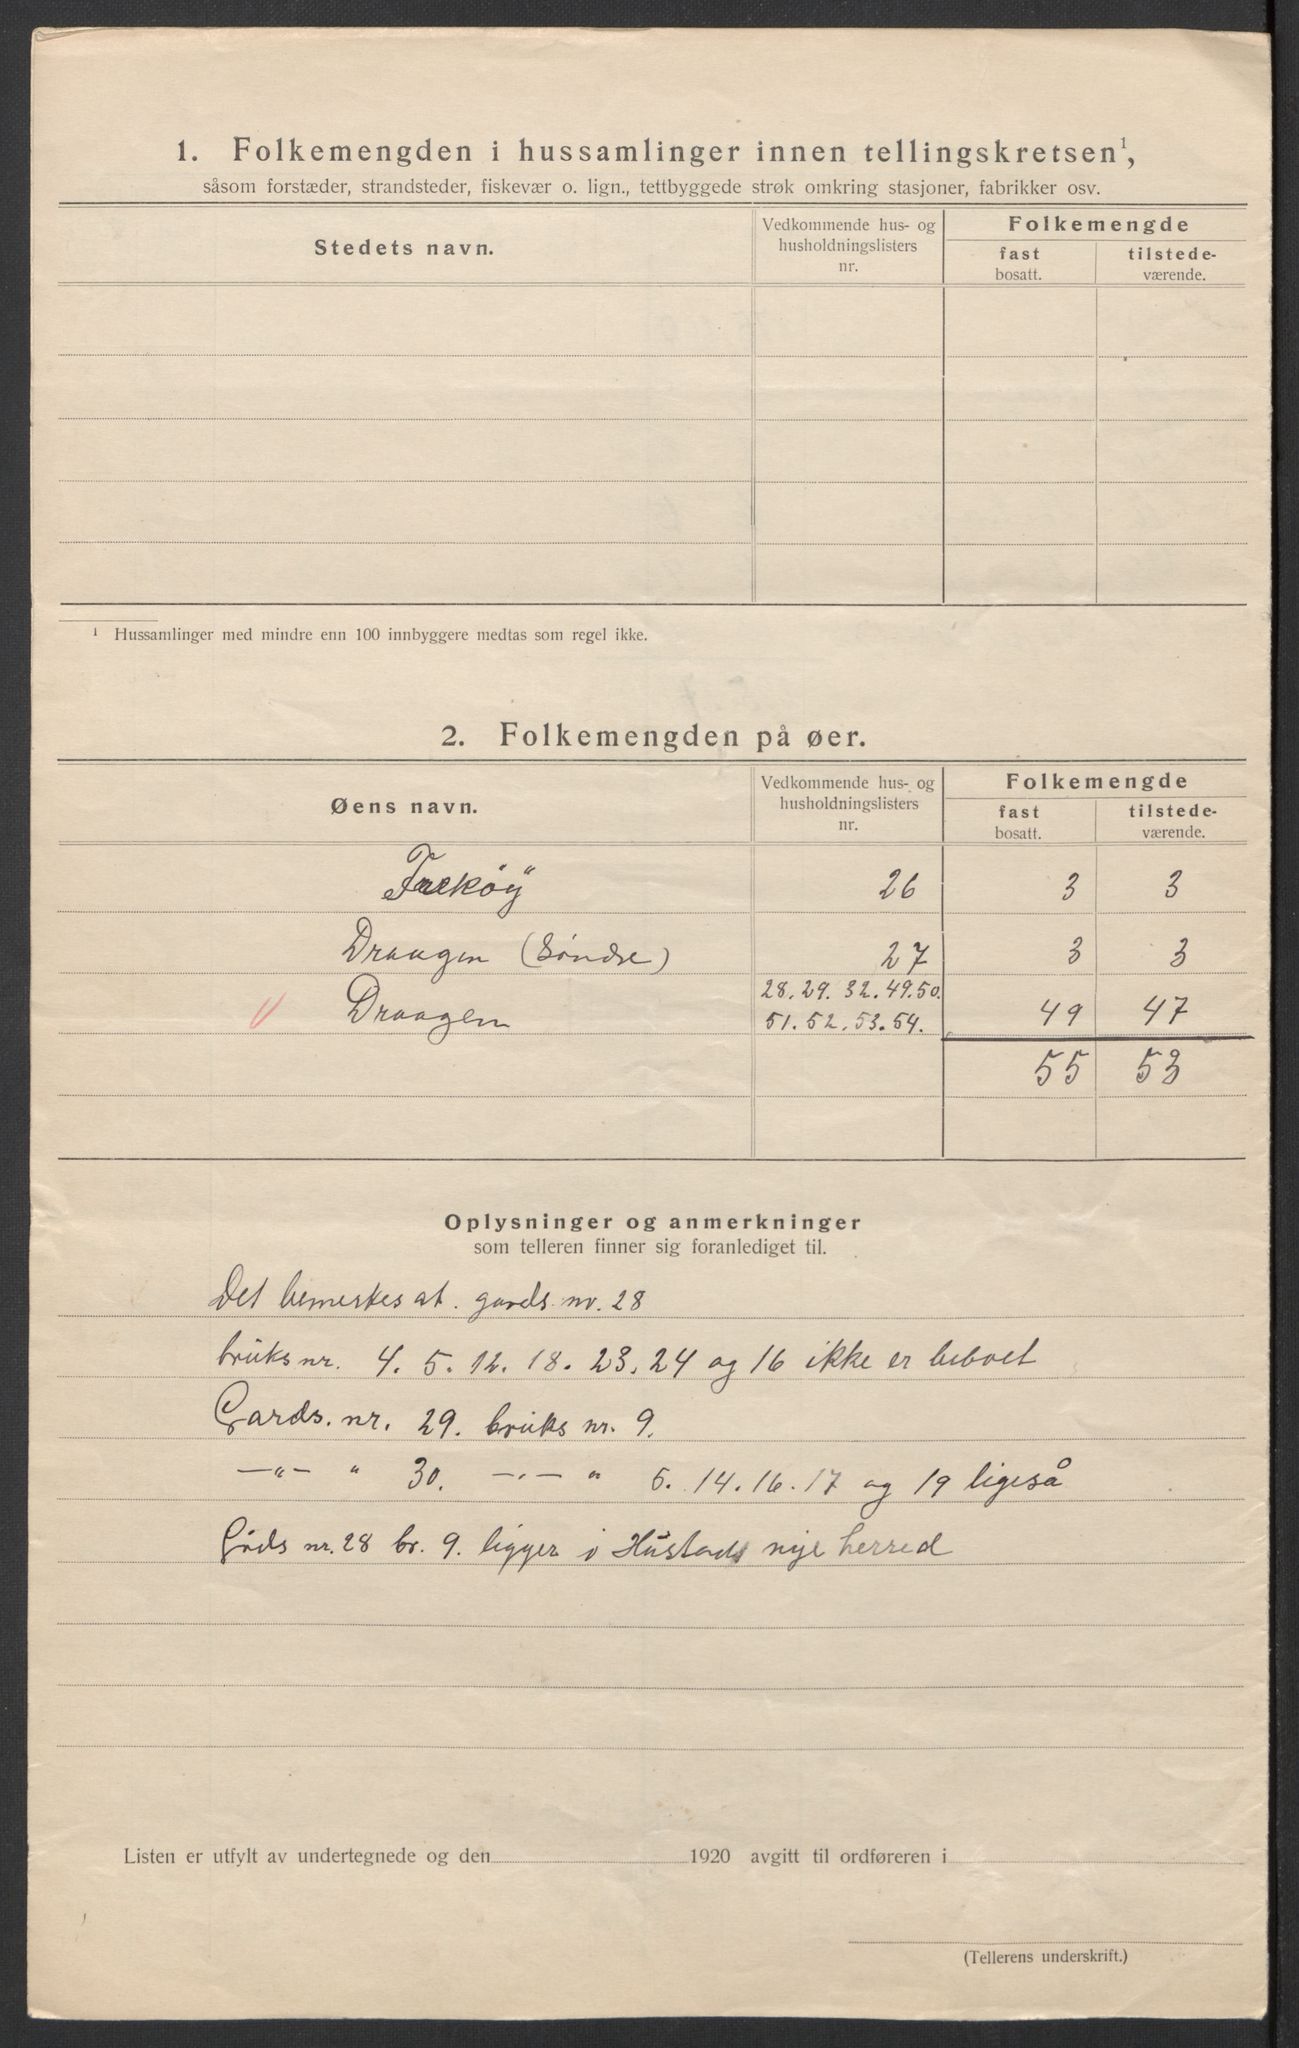 1. Folkemengden i hussamlinger innen tellingskretsen¹,
såsom forstæder, strandsteder, fiskevær o. lign., tettbyggede strøk omkring stasjoner, fabrikker osv.
Stedets navn.
Vedkommende hus- og husholdningslisters nr.
Folkemengde
fast bosatt.
tilstedeværende.
¹ Hussamlinger med mindre enn 100 innbyggere medtas som regel ikke.
2. Folkemengden på øer.
Øens navn.
Vedkommende hus- og husholdningslisters nr.
Folkemengde
fast bosatt.
tilstedeværende.
26 3 3
Draagen (Söndre) 27 3 3
28. 29. 32. 49. 50.
Draagen 51. 52. 53. 54. 49 47
55 53
Oplysninger og anmerkninger
som telleren finner sig foranlediget til.
Det bemerkes at. gards. nr. 28
bruks nr. 4. 5. 12. 18. 23. 24 og 16 ikke er beboet
Gards. nr. 29. bruks nr. 9.
—"— " 30. —"— " 6. 14. 16. 17 og 19 ligeså
nr. 28 br. 9. ligger i Hustads nye herred
Listen er utfylt av undertegnede og den 1920 avgitt til ordføreren i
(Tellerens underskrift.)